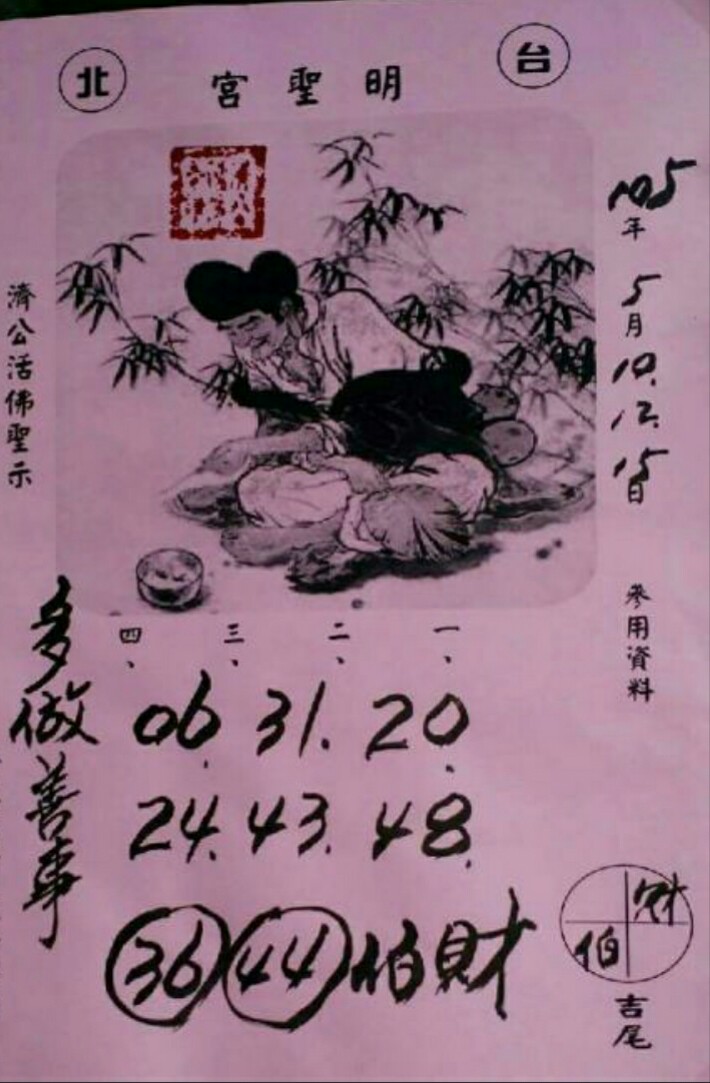 台北
明聖宮
105年5月10.12.15日
參用資料
濟公活佛聖示
一、二、三、四、
20. 31. 06.
48. 43. 24.
伯財 44 36
財
伯
吉尾
多做善事